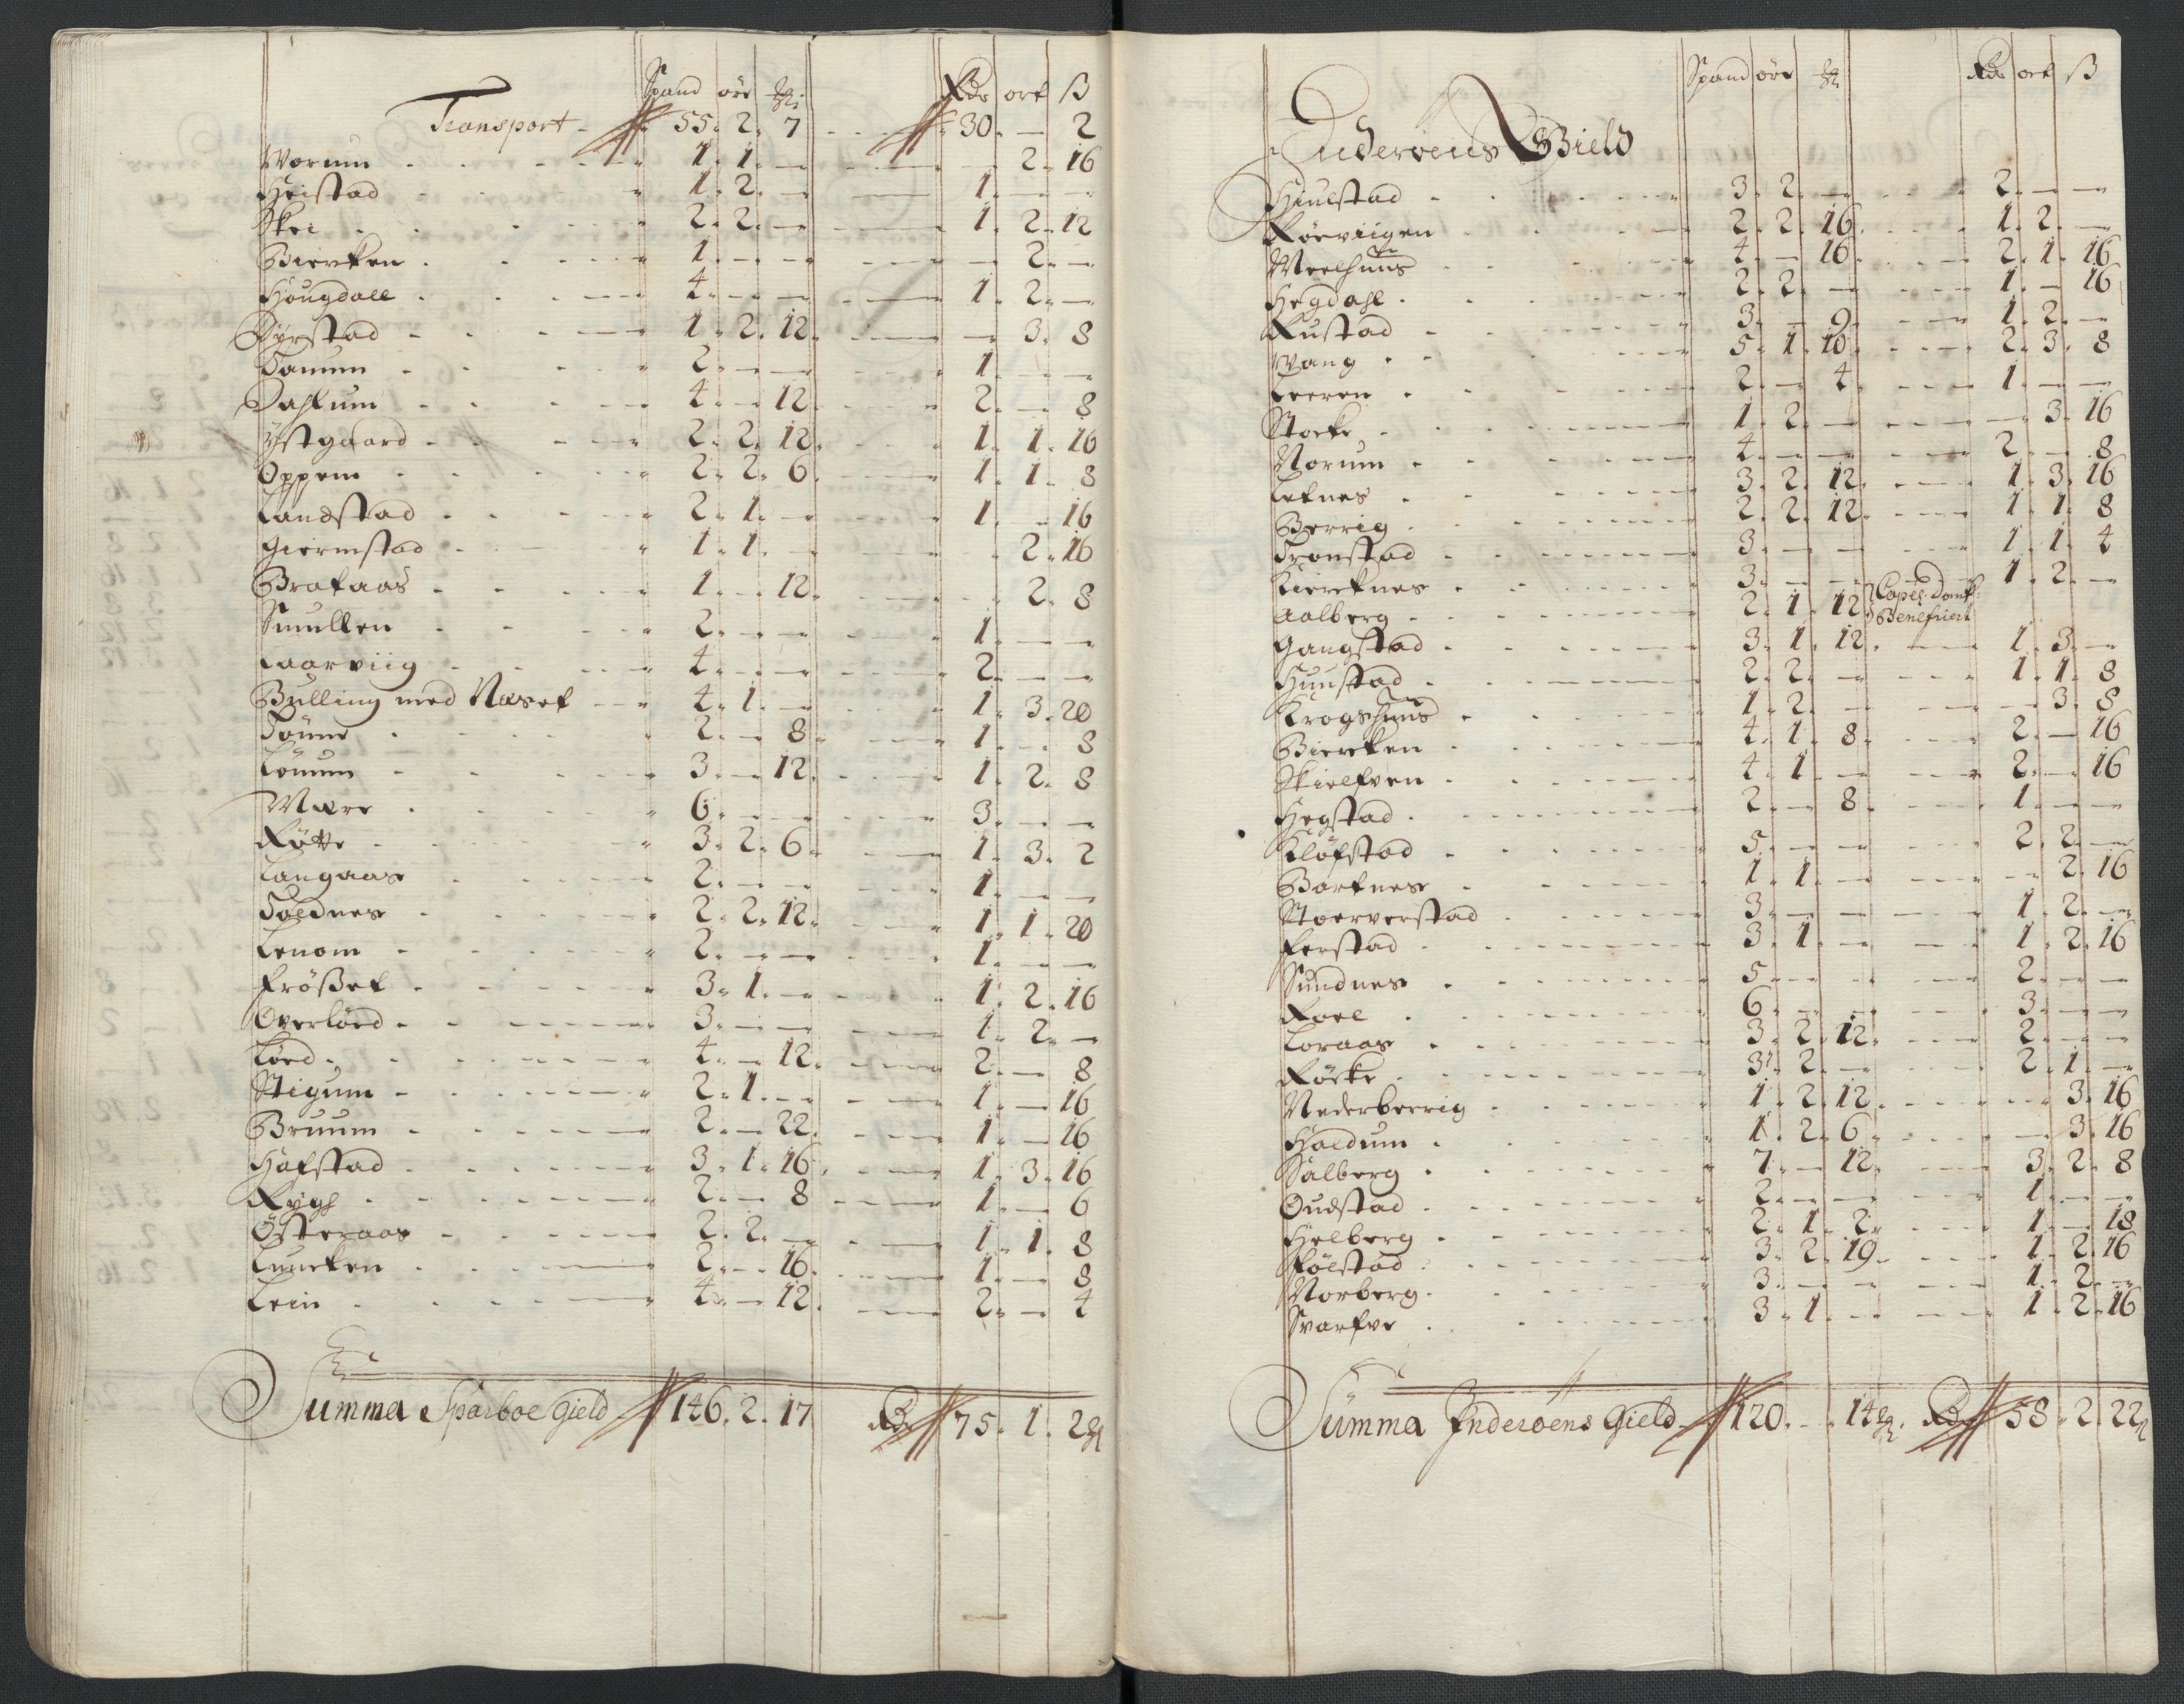 Spand öre Rdr ort ß
Transport - 55. 2. 7 30. — 2
Worum 1. 1. — — 2. 16
Heistad 1. 2. — 1. — —
Skei 2. 2. — 1. 2. 12
Biercken 1. — — — 2. —
Hougdall 4. — — 1. 2. —
Dyrstad 1. 2. 12. — 3. 8
Hammm 2. — — 1. — —
Dahlum 4. — 12. 2. — 8
Ystgaard 2. 2. 12. 1. 1. 16
Oppem 2. 2. 6. 1. 1. 8
Landstad 2. 1. — 1. — 16
Giermstad 1. 1. — . 2. 16
Brataas 1. — 12. . 2. 8
Smullen 2. — — 1. — —
Laarviig 4. — — 2. — —
Bulling med Næset 4. 1. — 1. 3. 20
Tönne 2. — 8. 1. — 8
Lönum 3. — 12. 1. 2. 8
Mære 6. — — 3. — —
Røtte 3. 2. 6. 1. 3. 2
Langaas 2. — — 1. — —
Toldnes 2. 2. 12. 1. 1. 20
Lenom 2. — — 1. — —
Frößet 3. 1. — 1. 2. 16
Overlöed 3. — — 1. 2. —
Löed 4. — 12. 2. — 8
Stigum 2. 1. — 1. — 16
Bruum 2. — 22. 1. — 16
Hafstad 3. 1. 16. 1. 3. 16
Rygh 2. — 8 1. — 6
Österaas 2. 2. — 1. 1. 8
Luncken 2. — 16. 1. — 8
Lein 4. — 12. 2. — 4
Summa Sparboe Gield 146. 2. 17 Rdr 75. 1. 2
Spand öre Rdr ort ß
Inderoens Gield
Hiulstad 3. 2. — 2. — —
Röeviigen 2. 2. 16. 1. 2. —
Meelhuus 4. — 16. 2. 1. 16
Hegdahl 2. 2. — 1. — 16
Rustad 3. — 9. 1. 2. —
Wang 5. 1. 10. 2. 3. 8
Leeren 2. — 4. 1. — —
Stocke 1. 2. — — 3. 16
Norum 4. — — 2. — 8
Letnes 3. 2. 12. 1. 3. 16
Berrig 2. 2. 12. 1. 1. 8
Tronstad 3. — — 1. 1. 4
Kiercknes 3. — — 1. 2. —
Aalberg 2. 1. 12 Capel: Domk: Beneficert
Gangstad 3. 1. 12. 1. 3. —
Hunstad 2. 2. — 1. 1. 8
Krogshuus 1. 2. — — 3. 8
Biercken 4. 1. 8. 2. — 16
Skielfven 4. 1. — 2. — 16
Hegstad 2. — 8. 1. — —
Klöfstad 5. — — 2. 2. —
Bartnes 1. 1. — — 2. 16
Stoerverstad 3. — — 1. 2. —
Ferstad 3. 1. — 1. 2. 16
Sundnes 5. — — 2. — —
Roel 6. — — 3. — —
Loraas 3. 2. 12. 2. — —
Röcke 3. 2. — 2. 1. —
Nederberrig 1. 2. 12. — 3. 16
Haldum 1. 2. 6. — 3. 16
Salberg 7. — 12. 3. 2. 8
Oudstad 2. — — 1. — —
Hielberg 2. 1. 2. 1. — 18
Følstad 3. 2. 19. 1. 2. 16
Norberg 3. — — 1. 2. —
Svarfve 3. 1. — 1. 2. 16
Summa Inderoens Gield 120. — 14 Rdr 58. 2. 22